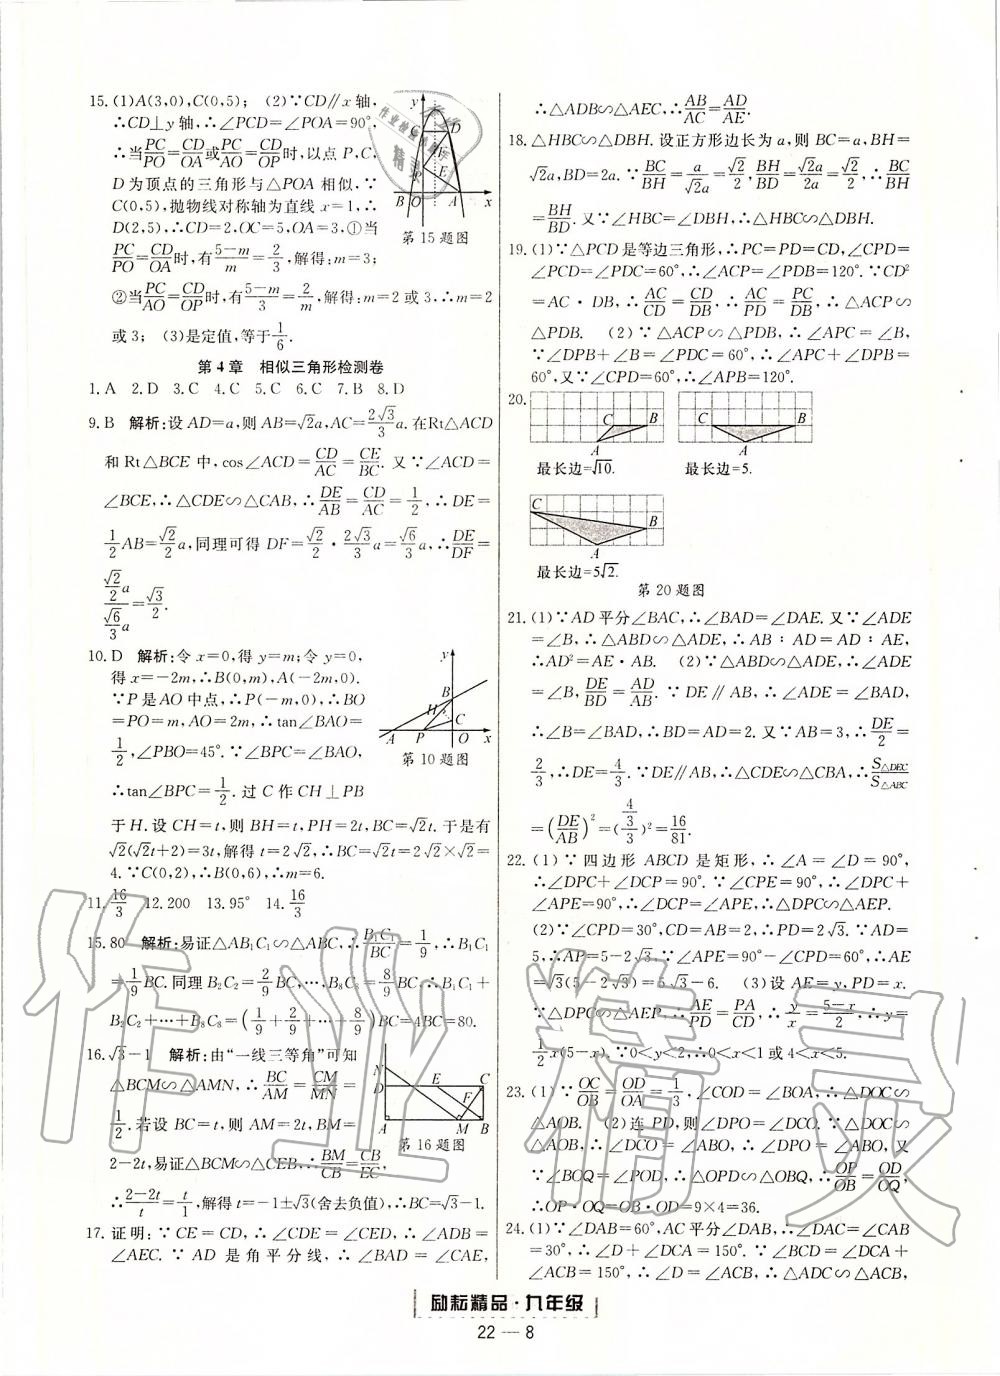 15. (1)A(3,0),C(0,5); (2)∵CD∥x 轴,
∴CD⊥y 轴,∴∠PCD=∠POA=90°,
∴当PC/PO=CD/OA或PC/OA=CD/OP时,以点 P,C,
D 为顶点的三角形与△POA 相似,∵
C(0,5),抛物线对称轴为直线 x=1,∴
D(2,5),∴CD=2,OC=5,OA=3,①当
PC/PO=CD/OA时,有5-m/m=2/3,解得:m=3;
②当PC/AO=CD/OP时,有5-m/3=2/m,解得:m=2 或 3.∴m=2
或3; (3)是定值,等于1/6.
y
C
D
E
B O A x
第 15 题图
第 4 章 相似三角形检测卷
1. A 2. D 3. C 4. C 5. C 6. C 7. B 8. D
9. B 解析:设 AD=a,则 AB=√2a,AC=2√3/3a. 在Rt△ACD
和 Rt△BCE 中,cos∠ACD=CD/AC=CE/BC. 又∵∠ACD=
∠BCE,∴△CDE∽△CAB,∴DE/AB=CD/AC=1/2,∴DE=
1/2AB=√2/2a,同理可得 DF=√2/2·2√3/3a=√6/3a,∴DE/DF=
√2/2a/√6/3a=√3/2.
10. D 解析:令 x=0,得 y=m;令 y=0,
得 x=-2m,∴B(0,m),A(-2m,0).
∵P 是 AO 中点,∴P(-m,0),∴BO
=PO=m,AO=2m,∴tan∠BAO=
1/2,∠PBO=45°.∵∠BPC=∠BAO,
∴tan∠BPC=1/2. 过 C 作 CH⊥PB
于 H. 设 CH=t,则 BH=t,PH=2t,BC=√2t. 于是有
√2(√2t+2)=3t,解得 t=2√2,∴BC=√2t=2√2×√2=
4.∵C(0,2),∴B(0,6),∴m=6.
y
B
H
C
A P O x
第 10 题图
11. 16/3 12. 200 13. 95° 14. 16/3
15. 80 解析:易证△AB₁C₁∽△ABC,∴B₁C₁/BC=1/9,∴B₁C₁
=1/9BC. 同理 B₂C₂=2/9BC,…,B₈C₈=8/9BC,∴B₁C₁+
B₂C₂+…+B₈C₈=(1/9+2/9+…+8/9)BC=4BC=80.
16. √3-1 解析:由“一线三等角”可知
△BCM∽△AMN,∴BC/AM=CM/MN=
1/2. 若设 BC=t,则 AM=2t,BM=
2-2t,易证△BCM∽△CEB,∴BM/CB=CB/EC,
∴2-2t/t=t/1,解得 t=-1±√3(舍去负值),∴BC=√3-1.
N
D E C
F
A M B
第 16 题图
17. 证明:∵CE=CD,∴∠CDE=∠CED,∴∠ADB=
∠AEC.∵AD 是角平分线,∴∠BAD=∠CAE,
∴△ADB∽△AEC,∴AB/AC=AD/AE.
18. △HBC∽△DBH. 设正方形边长为 a,则 BC=a,BH=
√2a,BD=2a.∵BC/BH=a/√2a=√2/2,BH/BD=√2a/2a=√2/2,∴BC/BH
=BH/BD. 又∵∠HBC=∠DBH,∴△HBC∽△DBH.
19. (1)∵△PCD 是等边三角形,∴PC=PD=CD,∠CPD=
∠PCD=∠PDC=60°,∴∠ACP=∠PDB=120°.∵CD²
=AC·DB,∴AC/CD=CD/DB,∴AC/PD=PC/DB,∴△ACP∽
△PDB. (2)∵△ACP∽△PDB,∴∠APC=∠B,
∵∠DPB+∠B=∠PDC=60°,∴∠APC+∠DPB=
60°,又∵∠CPD=60°,∴∠APB=120°.
20.
C B
A
最长边=√10.
C B
A
最长边=5.
C
B
A
最长边=5√2.
第 20 题图
21. (1)∵AD 平分∠BAC,∴∠BAD=∠DAE. 又∵∠ADE
=∠B,∴△ABD∽△ADE,∴AB∶AD=AD∶AE,
∴AD²=AE·AB. (2)∵△ABD∽△ADE,∴∠ADE
=∠B,DE/BD=AD/AB.∵DE∥AB,∴∠ADE=∠BAD,
∴∠B=∠BAD,∴BD=AD=2. 又∵AB=3,∴DE/2=
2/3,∴DE=4/3.∵DE∥AB,∴△CDE∽△CBA,∴S△DEC/S△ABC
=(DE/AB)²=(4/3/3)²=16/81.
22. (1)∵四边形 ABCD 是矩形,∴∠A=∠D=90°,
∴∠DPC+∠DCP=90°.∵∠CPE=90°,∴∠DPC+
∠APE=90°,∴∠DCP=∠APE,∴△DPC∽△AEP.
(2)∵∠CPD=30°,CD=AB=2,∴PD=2√3.∵AD=
5,∴AP=5-2√3.∵∠APE=90°-∠CPD=60°,∴AE
=√3(5-2√3)=5√3-6. (3)设 AE=y,PD=x.
∵△DPC∽△AEP,∴AE/PD=PA/CD,∴y/x=5-x/2,∴y=
1/2x(5-x).∵0<y<2,∴0<x<1 或 4<x<5.
23. (1)∵OC/OB=OD/OA=1/3,∠COD=∠BOA,∴△DOC∽
△AOB. (2)连 PD,则∠DPO=∠DCO.∵△DOC∽
△AOB,∴∠DCO=∠ABO,∴∠DPO=∠ABO,又
∵∠BOQ=∠POD,∴△OPD∽△OBQ,∴OP/OB=OD/OQ,
∴OP·OQ=OB·OD=9×4=36.
24. (1)∵∠DAB=60°,AC 平分∠DAB,∴∠DAC=∠CAB
=30°,∴∠D+∠DCA=150°.∵∠BCD=∠DCA+
∠ACB=150°,∴∠D=∠ACB,∴△ADC∽△ACB,
励耘精品·九年级
22 — 8
作业精灵